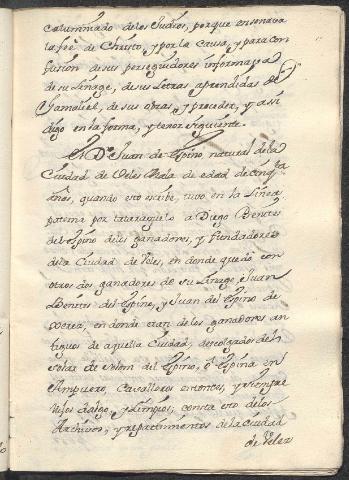 calumniado de los Judios, porque enseñava
la feè de Christo, y por la Causa, y para con
fusion de sus perseguidores informava
de su Linage, de sus Letras aprendidas de
Gamaliel, de sus obras, y proceder, y assi
digo en la forma, y tenor siguiente.
El Dr. Juan de Espino natural de la
Ciudad de Veles Mala de edad de cinqta
años, quando esto escribe, tuvo en la Linea
paterna por tatarabuelo a Diego Benites
del Espino de los ganadores, y fundadores
de la Ciudad de Veles, en donde quedò con
otros dos ganadores de su Linage, Juan
Benites del Espino, y Juan del Espino de
Xerez, en donde eran de los ganadores an
tiguos de aquella Ciudad, descolgados del
solar de del Espino, ò Espina en
Ampuero, Cavalleros entonces, y siempre
hijos dalgo, y Limpios, consta esto de los
Archivos, y repartimientos de la Ciudad
de Velez